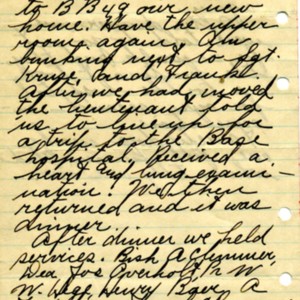 to B B 49 our new
home. Have the upper
rooms again, Am
bunking next to Sgt.
Kruse, and Franks.
After we had moved
the lieutenant told
us to line up for
a trip to the Base
hospital, received a
heart and lung exami-
nation. We then
returned and it was
dinner.
After dinner we held
services. Bish A
Dea Jos W
W. Henry A